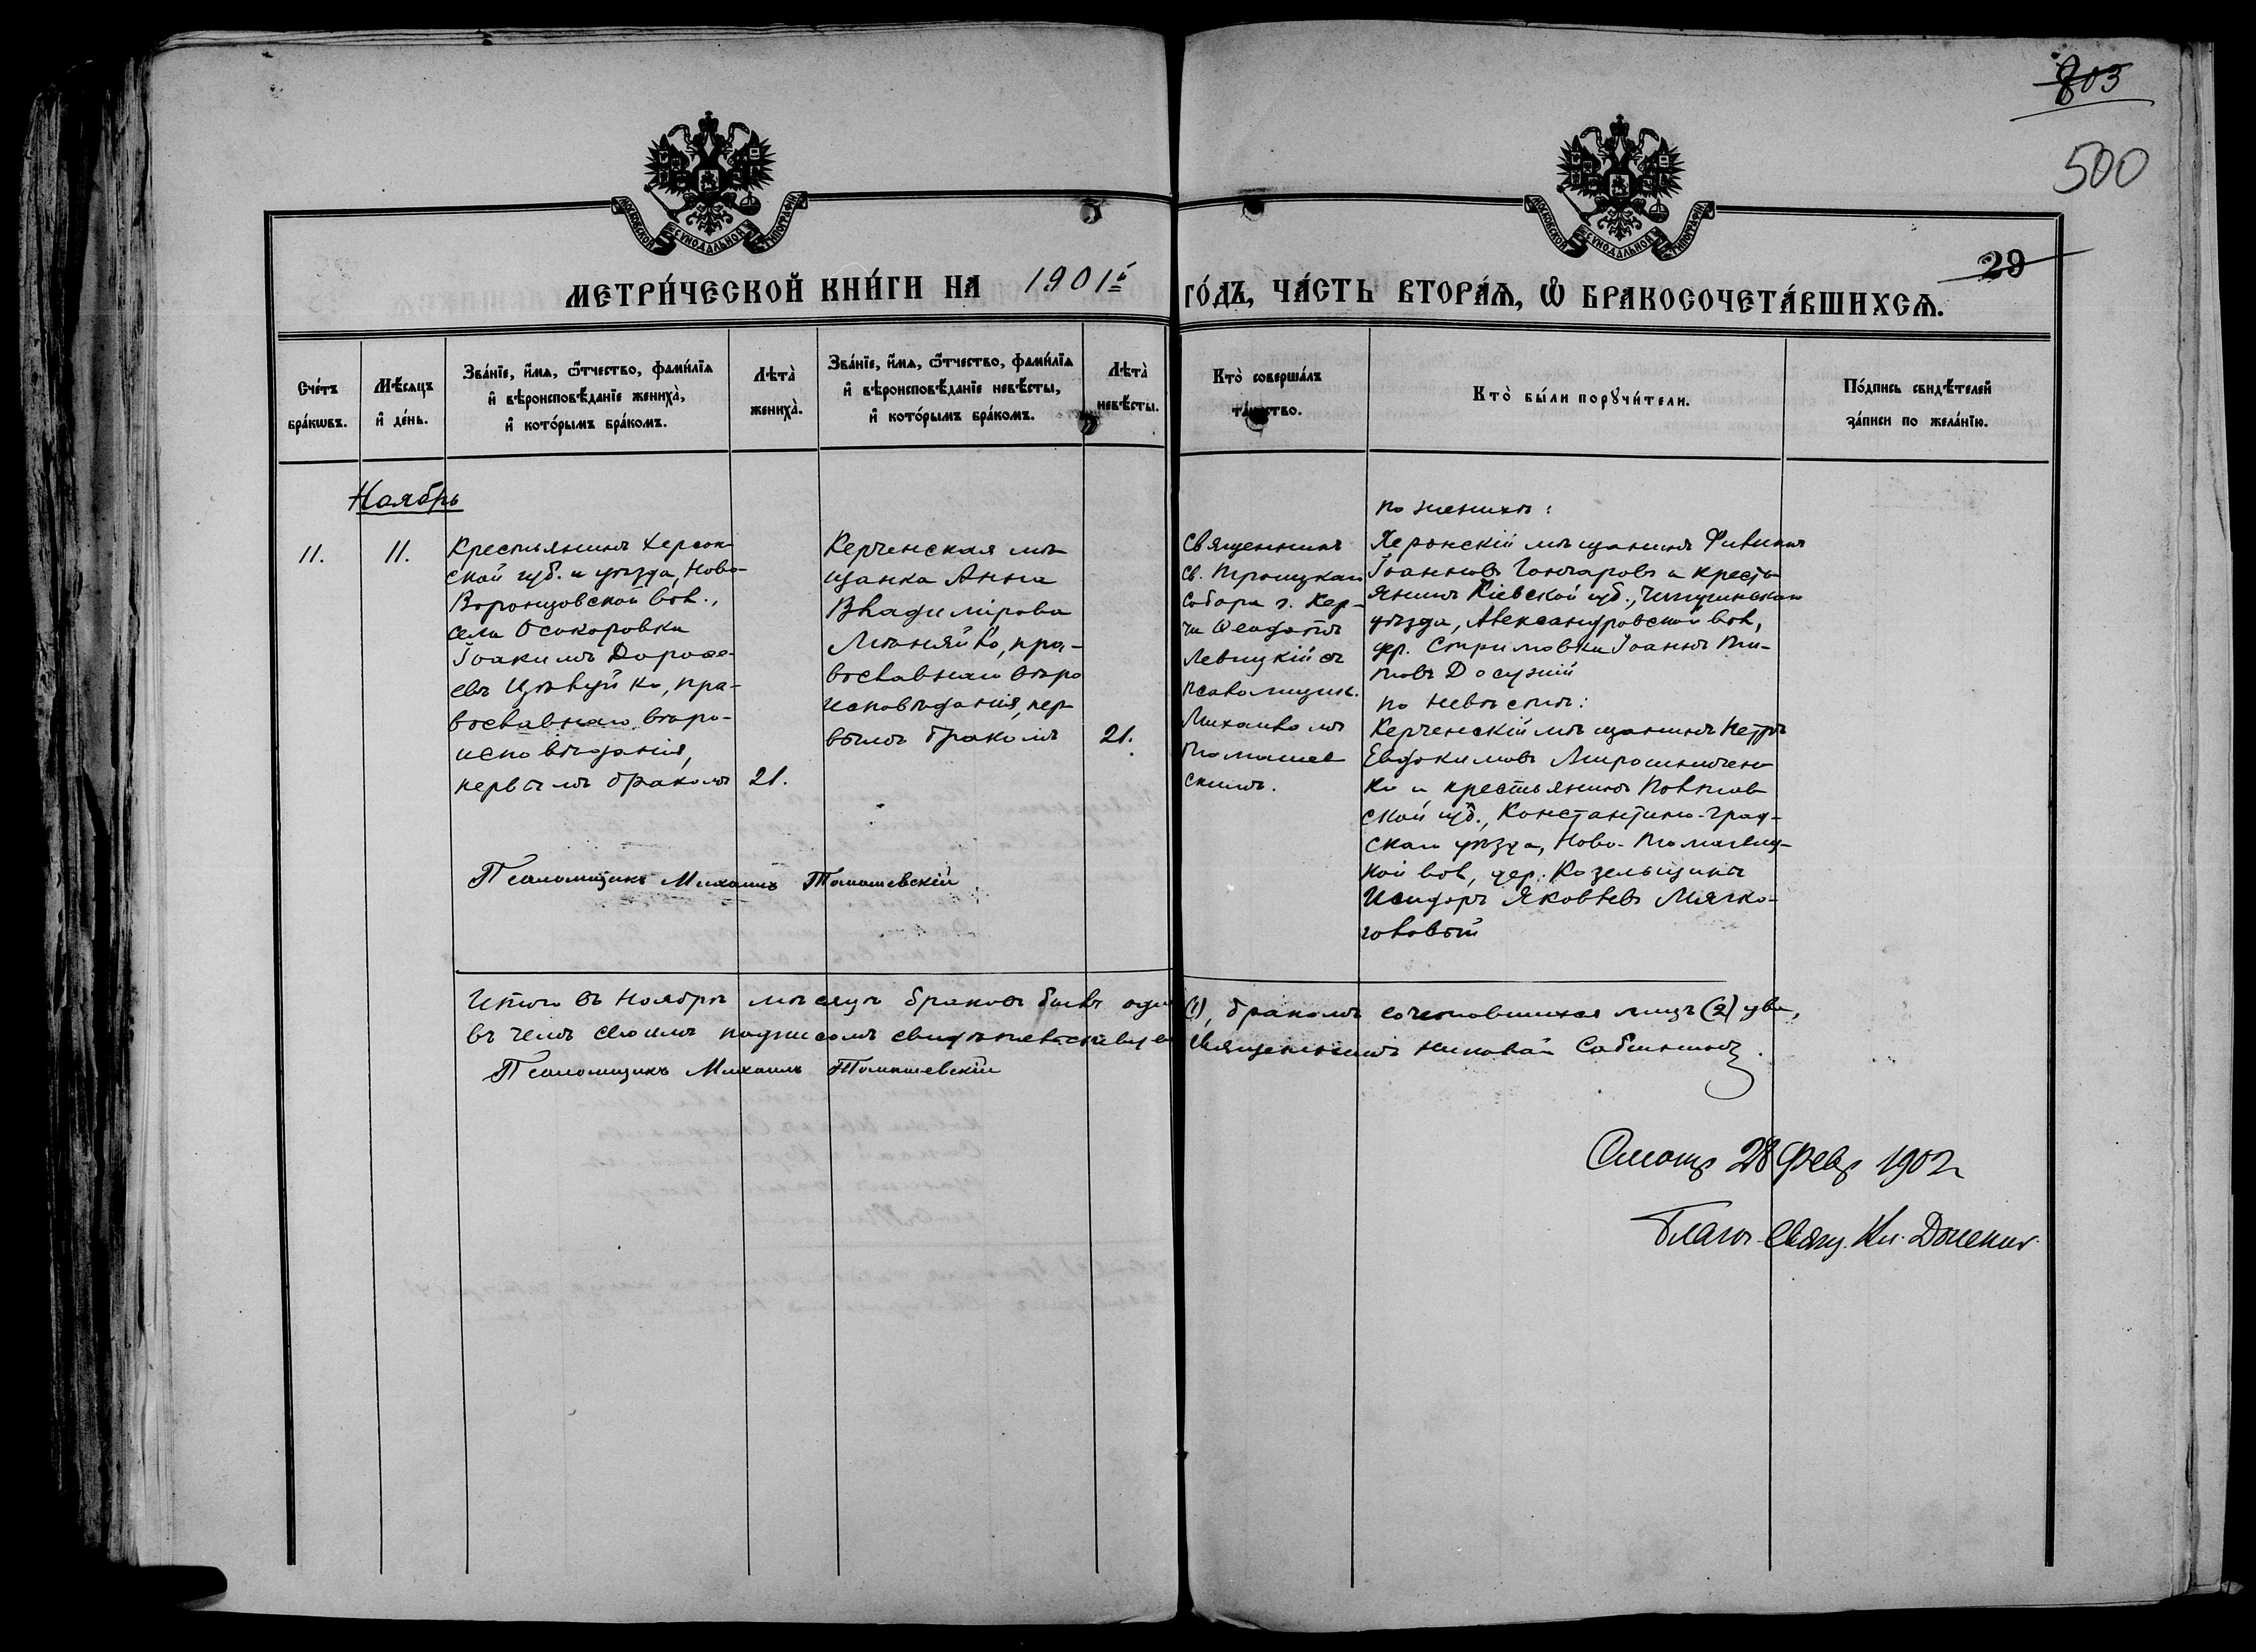 803
500
29
МОСКОВСКОЙ СѴНОДАЛЬНОЙ ТИПОГРАФІИ
МОСКОВСКОЙ СѴНОДАЛЬНОЙ ТИПОГРАФІИ
МЕТРИ́ЧЕСКОЙ КНИ́ГИ НА 1901й ГО́ДЪ, ЧА́СТЬ ВТОРА́Ѧ, Ѽ БРАКОСОЧЕТА́ВШИХСѦ.
Сче́тъ
бра́кѡвъ.
Мѣ́сяцъ
и҆ де́нь.
Зва́нїе, и҆́мѧ, ѻ҆́тчество, фами́лїѧ
и҆ вѣроисповѣ́данїе жениха̀,
и҆ кото́рымъ бра́комъ.
Лѣта̀
жениха̀.
Зва́нїе, и҆́мѧ, ѻ҆́тчество, фами́лїѧ
и҆ вѣроисповѣ́данїе невѣ́сты,
и҆ кото́рымъ бра́комъ.
Лѣта̀
невѣ́сты.
Кто̀ соверша́лъ
та́инство.
Кто̀ бы́ли порꙋчи́тели.
По́дпись свидѣ́телей
за́писи по жела́нїю.
Ноябрь
11.
11.
Крестьянинъ Херсон-
ской губ. и уѣзда, Ново-
Воронцовской вол.,
села Осокоровки
Іоакимъ Дорофе-
евъ Цѣлуйко, пра-
вославнаго вѣро-
исповѣданія,
первымъ бракомъ
21.
Керченская мѣ-
щанка Анна
Владимірова
Мѣняйло, пра-
вославнаго вѣро
исповѣданія, пер-
вымъ бракомъ
21.
Священникъ
Св. Троицкаго
Собора г. Кер-
чи Ѳеодотъ
Левицкій съ
псаломщик.
Михаиломъ
Томашев
скимъ.
По женихѣ:
Херсонскій мѣщанинъ Филиппъ
Іоанновъ Гончаровъ и кресть
янинъ Кіевской губ., Чигиринскаго
уѣзда, Александровской вол,
дер. Стримовки Іоаннъ Ти-
товъ Досужій
По невѣстѣ:
Керченскій мѣщанинъ Петръ
Евдокимовъ Мирошничен-
ко и крестьянинъ Полтав
ской губ., Константино-град-
скаго уѣзда, Ново-Тома
кой вол, дер. Козельщины
Исидоръ Яковлевъ Мягко-
головый
Псаломщикъ Михаилъ Томашевскій
Итого въ Ноябрѣ мѣсяцѣ браковъ былъ одинъ (1), бракомъ сочетавшихся лицъ (2) два,
въ чемъ своимъ подписомъ свидѣтельствуемъ Священникъ Николай Сабининъ.
Псаломщикъ Михаилъ Томашевскій
28 Февр 1902
Благоч. Свящ. Кл.